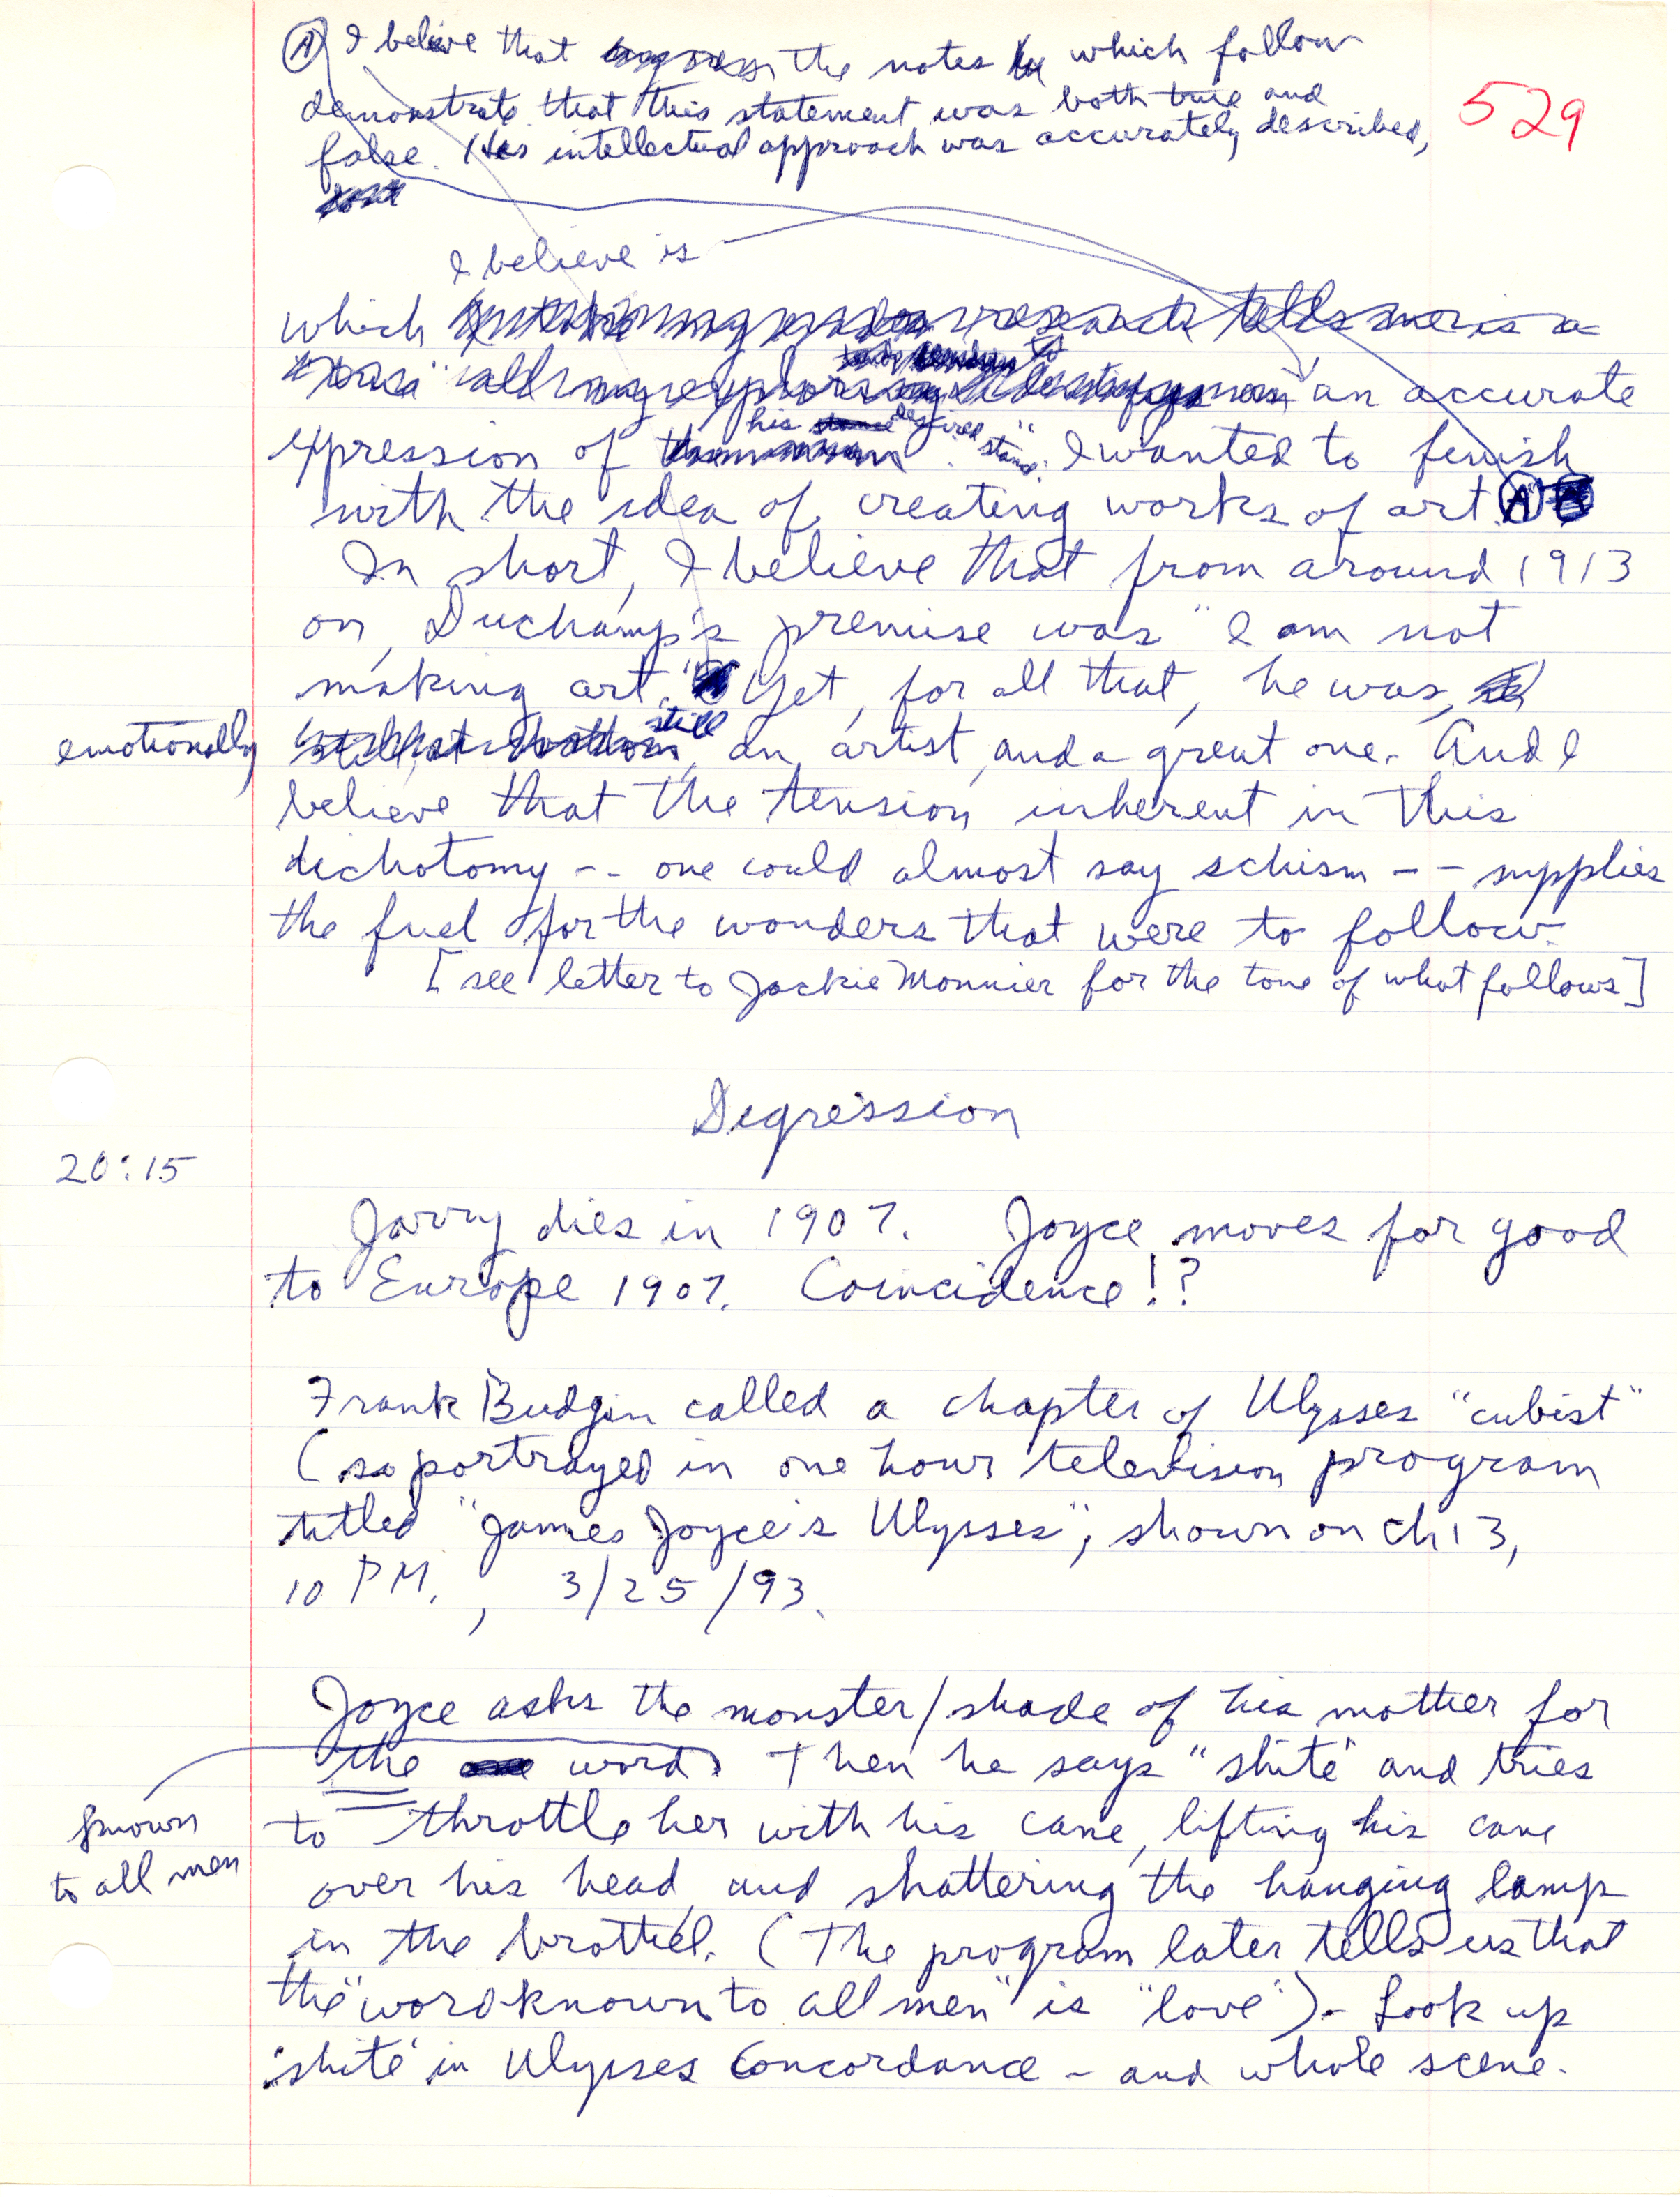 Ⓐ I believe that the notes which follow
demonstrate that this statement was both true and
false. His intellectual approach was accurately described,
529
I believe is
which
an accurate
his desired "stance".
expression of I wanted to finish
with the idea of creating works of art. Ⓐ
In short, I believe that from around 1913
on, Duchamp's premise was "I am not
making art." Yet, for all that, he was,
emotionally still an artist, and a great one. And I
believe that the tension inherent in this
dichotomy -- one could almost say schism -- supplies
the fuel for the wonders that were to follow.
[see letter to Jackie Monnier for the tone of what follows]
Digression
20:15
Jarry dies in 1907. Joyce moves for good
to Europe 1907. Coincidence!?
Frank Budgin called a chapter of Ulysses "cubist"
(so portrayed in one hour television program
titled "James Joyce's Ulysses", shown on Ch 13,
10 PM., 3/25/93.
Joyce asks the monster/shade of his mother for
the word. Then he says "shite" and tries
known
to all men
to throttle her with his cane, lifting his cane
over his head, and shattering the hanging lamp
in the brothel. (The program later tells us that
the "word known to all men" is "love"). Look up
"shite" in Ulysses Concordance - and whole scene.